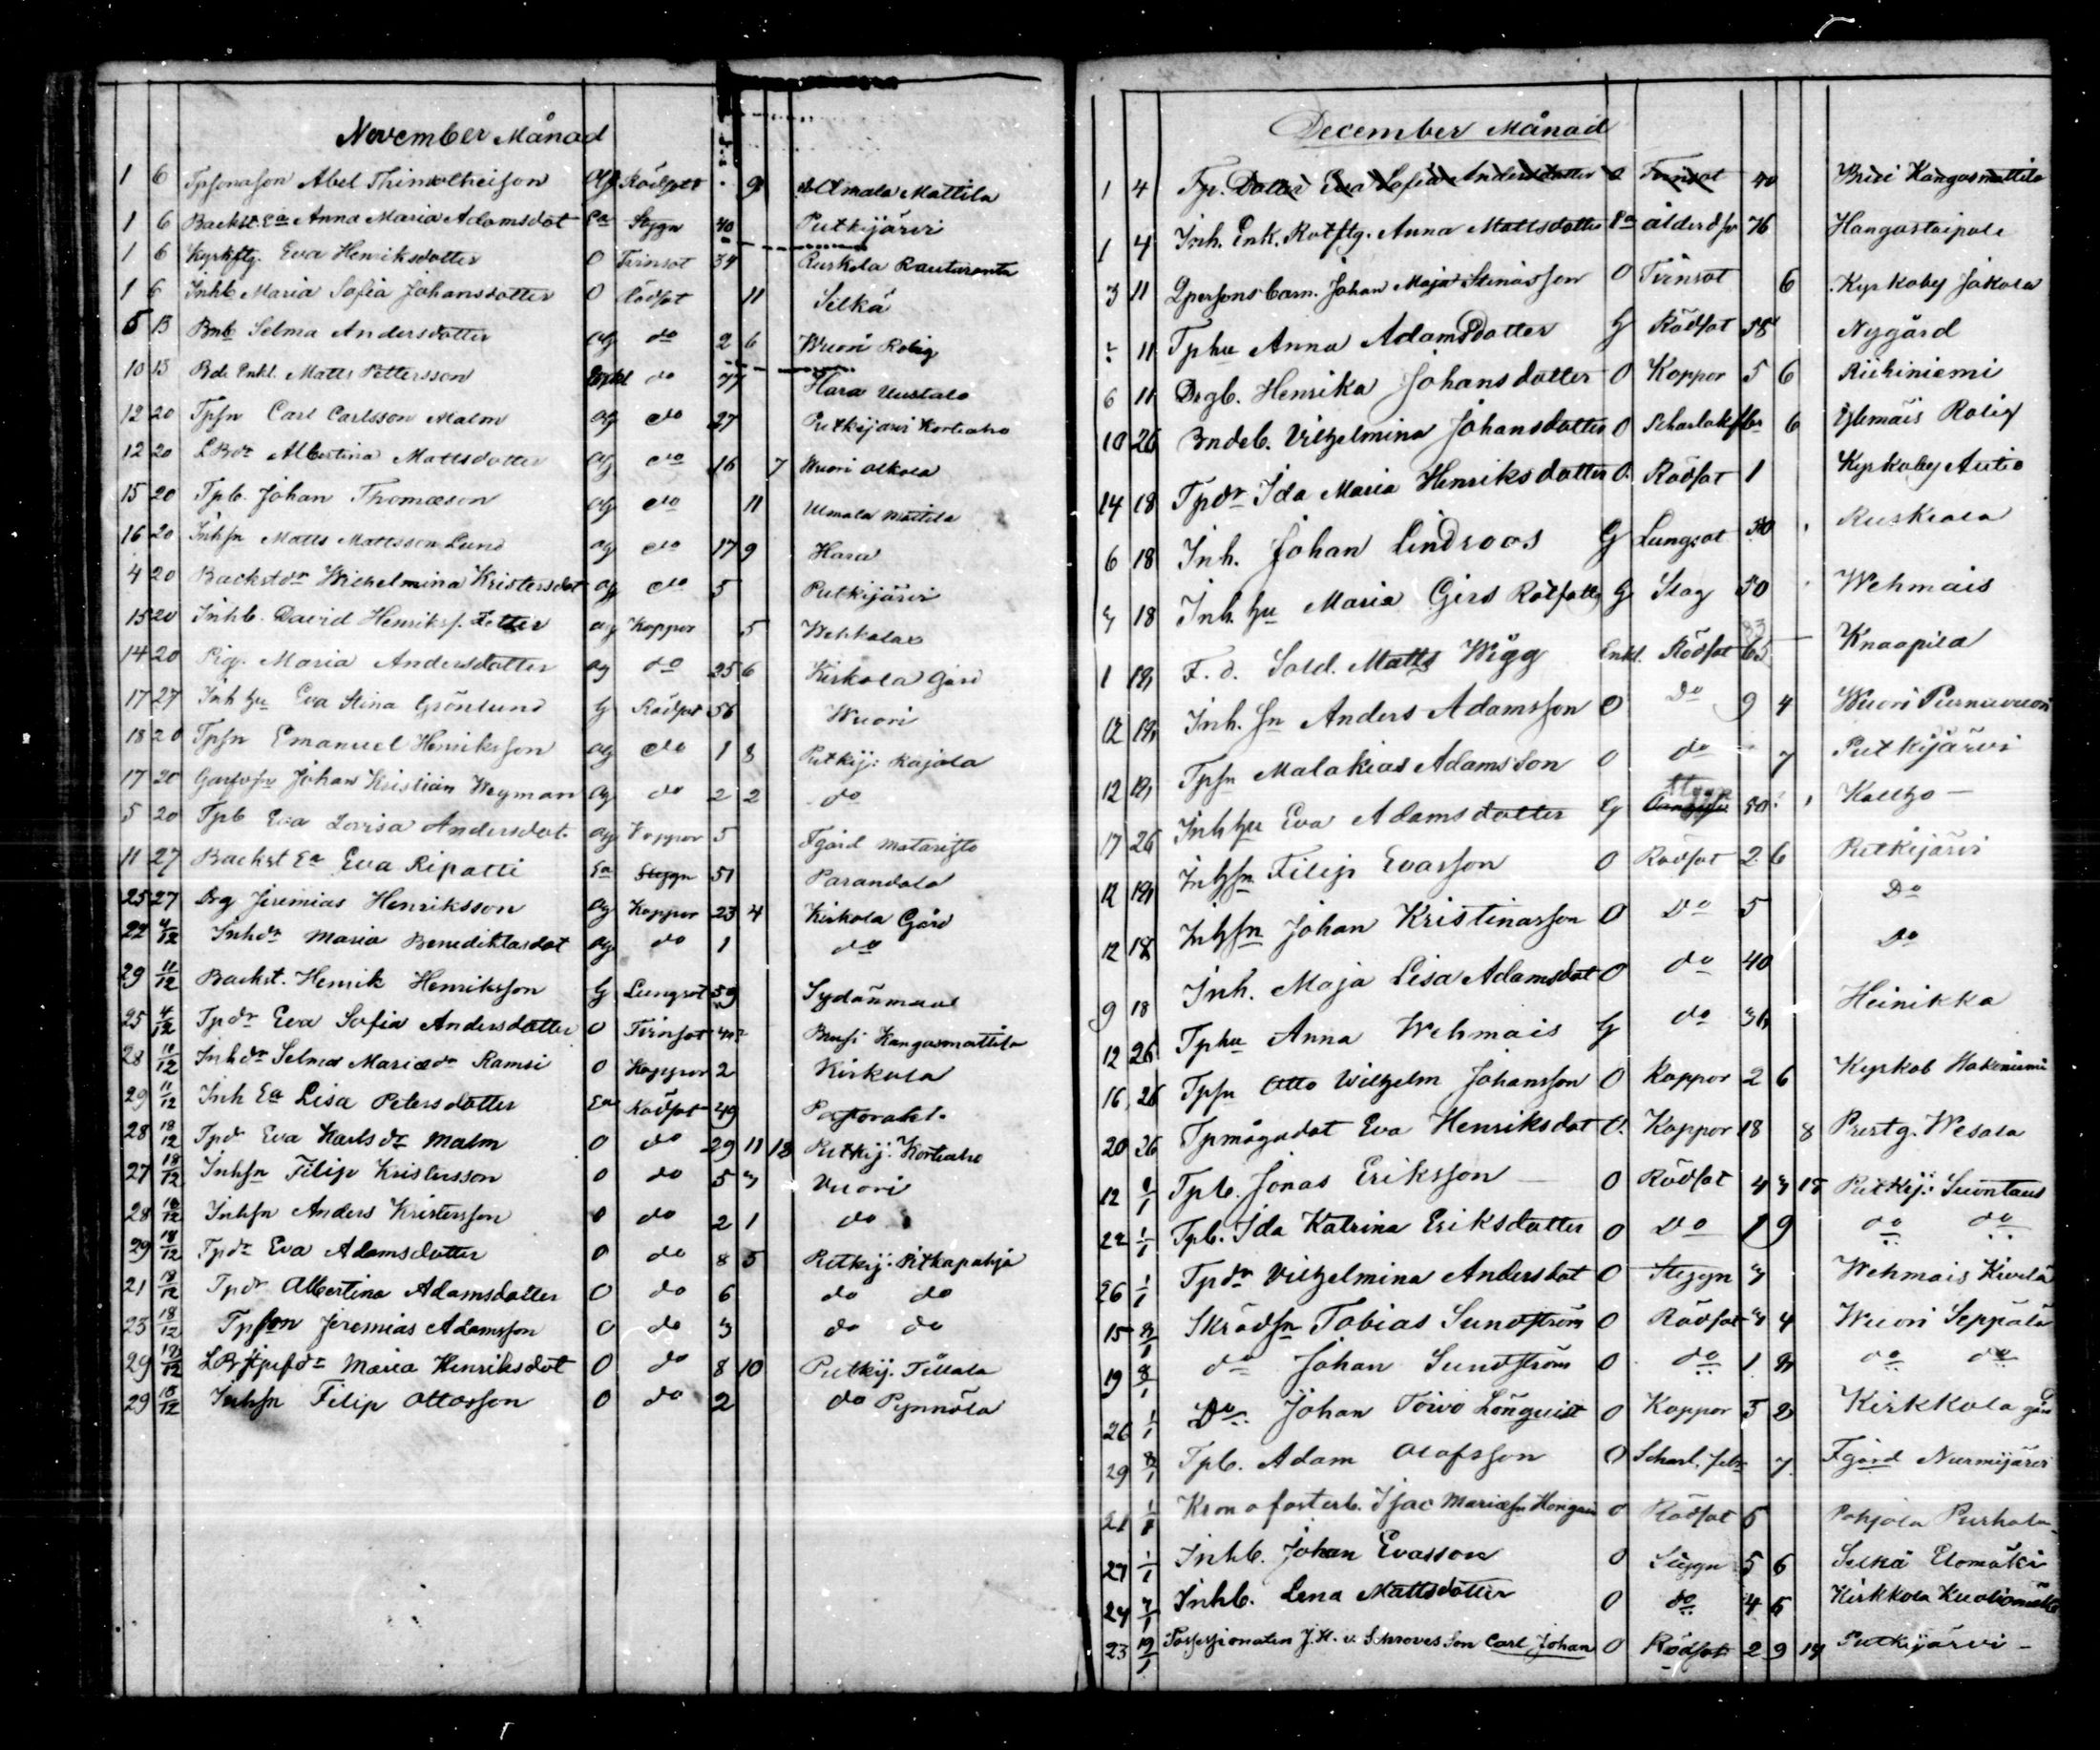 November Månad
1 6 Tpsonason Abel Thimotheison og Rödsot 9 Ulmala Mattila
1 6 Backst. Ea Anna Maria Adamsdot Ea Stygn 40 Putkijärvi
1 6 Kyrkftg. Eva Henriksdotter O Tvinsot 34 Ruskola Rauturanta
1 6 Inhb Maria Sofia Johansdotter O Rödsot 11 Silkä
5 13 Bnb Selma Andersdotter og do 2 6 Wuori Rolig
10 13 Bde Enkl. Matts Pettersson Enkl do 77 Hara Uustalo
12 20 Tpsn Carl Carlsson Malm og do 27 Putkijärvi Korteaho
12 20 LBdr Albertina Mattsdotter og do 16 7 Wuori Alkola
15 20 Tpb. Johan Thomasson og do 11 Ulmala Mattila
16 20 Inhsn Matts Mattsson Lund og do 17 9 Hara
4 20 Backstdr Wilhelmina Kristersdot og do 5 Putkijärvi
15 20 Inhb. David Henriks. Zetter og Koppor 5 Wehkalax
14 20 Pig. Maria Andersdotter og do 25 6 Kirkola Gård
17 27 Inh hu Eva Stina Grönlund G Rödsot 56 Wuori
18 20 Tpsn Emanuel Henriksson og do 1 8 Putkij: Kajala
17 20 Johan Kristian Wegman og do 2 2 do
5 20 Tpb Eva Lovisa Andersdot. og Koppor 5 Fgård Mataristo
11 27 Backst Ea Eva Ripatti Ea Stygn 51 Parandala
25 27 Drg Jeremias Henriksson og Koppor 23 4 Kirkola Gård
22 4/12 Inhdr Maria Benediktasdot og do 1 do
29 11/12 Backst. Henrik Henriksson G Lungsot 59 Sydänmaa
25 4/12 Tpdr Eva Sofia Andersdotter O Tvinsot 40 Brusi Kangasmattila
28 11/12 Inhdr Selma Mariædr Ramsi O Koppor 2 Kirkola
29 11/12 Inh Ea Lisa Petersdotter Ea Rödsot 49 Pastorahl.
28 18/12 Tpdr Eva Karlsdr Malm O do 29 11 18 Putkij: Korteaho
27 18/12 Inhsn Filip Kristersson O do 5 3 Vuori
28 18/12 Inhsn Anders Kristersson O do 2 1 do
29 18/12 Tpdr Eva Adamsdotter O do 8 5 Putkij. Pitkapohja
21 18/12 Tpdr Albertina Adamsdotter O do 6 do do
23 18/12 Tpson Jeremias Adamsson O do 3 do do
29 18/12 Maria Henriksdot O do 8 10 Putkij. Tillala
29 18/12 Inhsn Filip Ottosson O do 2 do Pynnölä
December Månad
1 4 Tp. Dotter Eva Sofia Andersdotter O Tvinsot 40 Brusi Kangasmattila
1 4 Inh. Enk. Rotftg. Anna Mattsdotter Ea ålderdsv 76 Hangastaipale
3 11 Qpersons barn. Johan Maja Stinasson O Tvinsot 6 Kyrkoby Jakola
11 Tphu Anna Adamsdotter G Rödsot 58 Nygård
6 11 Drgb. Henrika Johansdotter O Koppor 5 6 Riihiniemi
10 26 Bndeb. Vilhelmina Johansdotter O Scharlakfbr 6 Ylemäis Rolig
14 18 Tpdr Ida Maria Henriksdotter O. Rödsot 1 Kyrkoby Autio
6 18 Inh. Johan Lindroos G Lungsot 50 Ruskiala
3 18 Inh. hu Maria Girs Rotfattig G Slag 50 Wehmais
1 18 F. d. Sold. Matts Wigg Enkl. Rödsot 65 83 Knaapila
12 18 Inh. sn Anders Adamsson O Do 9 4 Wuori Purnuvuori
12 18 Tpsn Malakias Adamsson O do 7 Putkijärvi
17 26 Inhhu Eva Adamsdotter G Stygn 50 Kaltzo
12 18 Inhsn Filip Evasson O Rödsot 2 6 Putkijärvi
12 18 Inhsn Johan Kristinasson O Do 5 Do
9 18 Inh. Maja Lisa Adamsdot O do 40 Do
12 26 Tphu Anna Wehmais G do 36 Heinikka
16 26 Tpsn Otto Wilhelm Johansson O Koppor 2 6 Kyrkob Hakoniemi
20 26 Tpmågsdot Eva Henriksdot O. Koppor 18 8 Prestg. Wesala
12 8/1 Tpb. Jonas Eriksson O Rödsot 4 3 15 Putkij: Suontaus
22 1/1 Tpb. Ida Katrina Eriksdotter O Do 1 9 do do
26 1/1 Tpdr Vilhelmina Andersdot O Stygn 3 Wehmais Kiurula
15 8/1 Skrädsn Tobias Sundström O Rödsot 3 4 Wuori Seppälä
19 8/1 do Johan Sundström O do 1 8 do do
26 1/1 Do. Johan Toivo Lönquist O Koppor 3 8 Kirkkola gård
29 8/1 Tpb. Adam Olofsson O Scharl. febr 7 Fgård Nurmijärvi
21 1/1 Krono fosterb. Isac Mariæsn O Rödsot 5 Pohjola Purhola
27 1/1 Inhb. Johan Evasson O Stygn 5 6 Silkä Elomäki
27 7/1 Inhb. Lena Mattsdotter O do 4 5 Kirkkola
23 19/1 Possessionaten J. H. v. Schroves Son Carl Johan O Rödsot 2 9 14 Putkijärvi